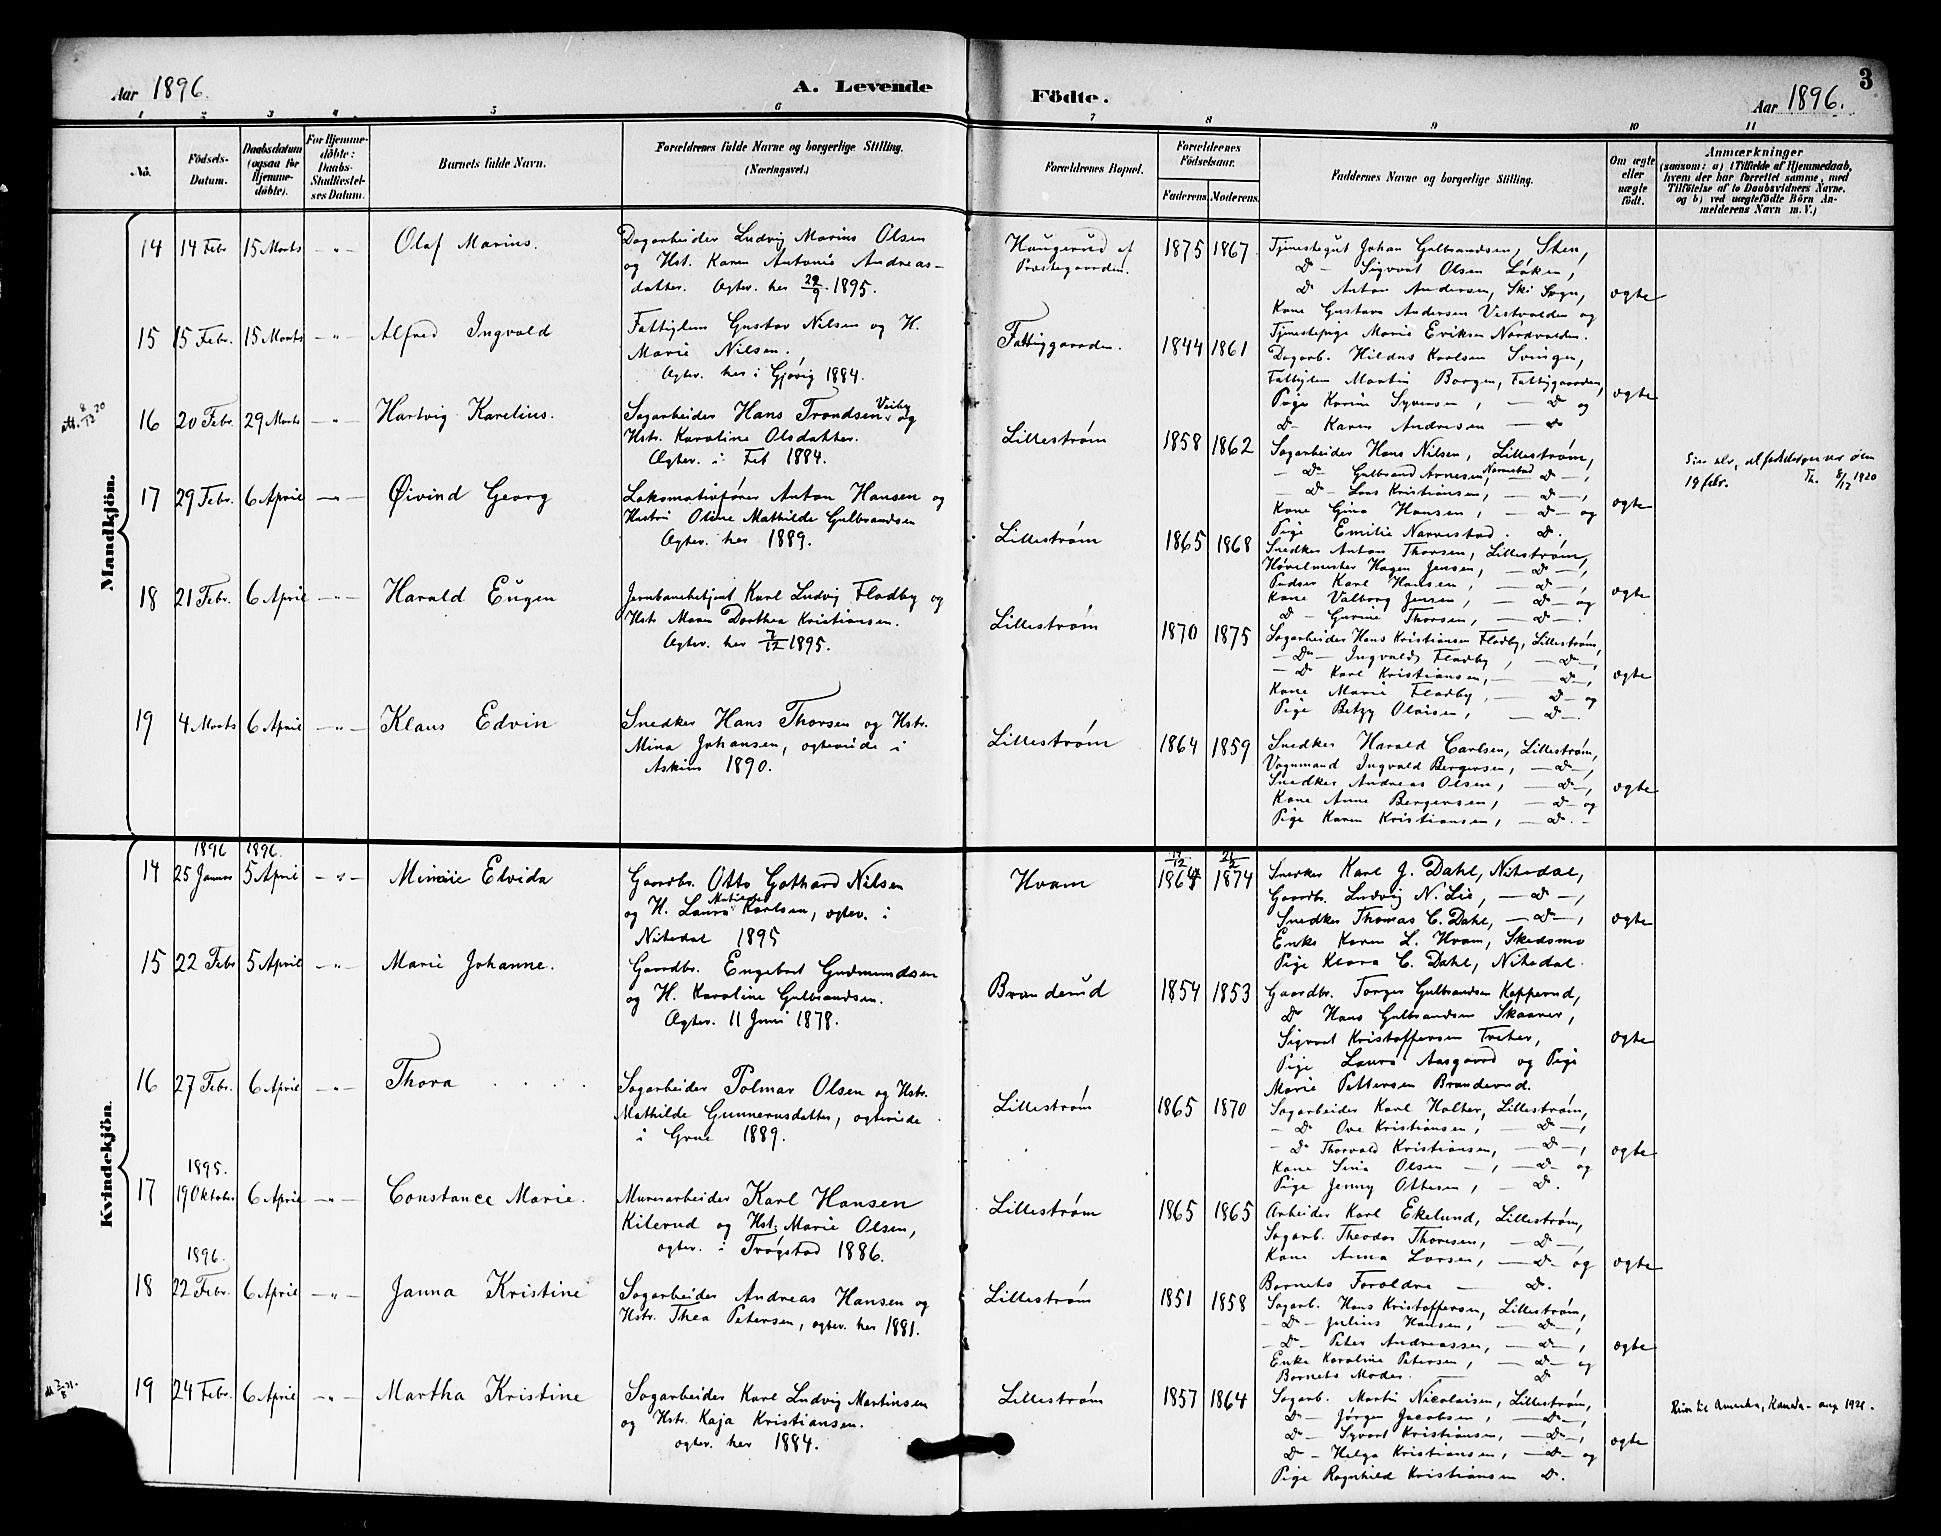 Aar 1896.
A. Levende
Födte.
Aar 1896.
3
1 2 3 4 5 6 7 8 9 10 11
No.
Födsels-
Datum.
Daabsdatum
(ogsaa for
Hjemme-
döbte).
For Hjemme-
döbte:
Daabs-
Stadfæstel-
ses Datum.
Barnets fulde Navn.
Forældrenes fulde Navne og borgerlige Stilling.
(Næringsvei.)
Forældrenes Bopæl.
Forældrenes
Födselsaar.
Faderens. Moderens.
Faddernes Navne og borgerlige Stilling.
Om ægte
eller
uægte
födt.
Anmærkninger
(saasom: a) i Tilfælde af Hjemmedaab,
hvem der har forrettet samme, med
Tilföielse af to Daabsvidners Navne,
og b) ved uægtefödte Börn An-
melderens Navn m. V.)
Mandkjön.
14 14 Febr 15 Marts – " – Olaf Marius.
Dagarbeider Ludvig Marius Olsen
og Hst. Karen Antonie Andreas-
datter. Ægtev. her 29/9 1895.
Haugerud af
Præstegaarden.
1875 1867
Tjenestegut Johan Gulbrandsen, Sten,
D – Sigvart Olsen Løken,
D Anton Andersen, Ski Sogn,
Kone Gustava Andersen Vestvolden og
Tjenestepige Marie Eriksen Nordvolden.
ægte
15 15 Febr. 15 Marts – " – Alfred Ingvald
Fattiglem Gustav Nilsen og H.
Marie Nilsen.
Ægtev. her i Gjøvig 1884.
Fattiggaarden.
1844 1861
Dagarb. Hildus Karlsen Svingen,
Fattiglem Martin Borgen, Fattiggaarden,
Pige Karin Syversen, – D – og
D – Karen Andresen – D
ægte
att. 8/12 20
16 20 Febr. 29 Marts – " – Hartvig Karelius.
Sagarbeider Hans Trondsen Veiby og
Hstr. Karoline Olsdatter.
Ægtev. i Fet 1884.
Lillestrøm
1858 1862
Sagarbeider Hans Nilsen, Lillestrøm,
– D – Gulbrand Arnesen, Narvestad – D –,
– D – Lars Kristiansen, – D –,
Kone Gina Hansen, – D – og
Pige Emilie Narvestad. D.
ægte
19 febr. 8/12 1920
17 29 Febr. 6 April – " – Øivind Georg
Lokomotivfører Anton Hansen og
Hustru Oline Mathilde Gulbrandsen
Ægtev. her 1889.
Lillestrøm
1865 1868
Snedker Anton Thorsen, Lillestrøm,
Høvelmester Hagen Jensen, – D –,
Pudser Karl Hansen, – D –,
Kone Valborg Jensen, – D – og
D – Gurine Thorsen, – D –.
ægte
18 21 Febr. 6 April – " – Harald Eugen
Jernbanebetjent Karl Ludvig Fladby og
Hstr. Maren Dorthea Kristiansen.
Ægtev. her 7/12 1895.
Lillestrøm
1870 1875
Sagarbeider Hans Kristiansen Fladby, Lillestrøm,
– D – Ingvald Fladby, – D –,
– D Karl Kristiansen, – D –,
Kone Marie Fladby, – D – og
Pige Betzy Olaisen, – D –.
ægte
19 4 Marts 6 April – " – Klaus Edvin
Snedker Hans Thorsen og Hstr.
Mina Johansen, ægteviede i
Askim 1890.
Lillestrøm
1864 1859
Snedker Harald Carlsen, Lillestrøm,
Vognmand Ingvald Bergersen, – D –,
Snedker Andreas Olsen, – D –,
Kone Anne Bergersen, – D – og
Pige Karen Kristiansen, – D. –
ægte
Kvindekjön.
1896 1896.
14 25 Januar 5 April – " – Minnie Elvida
Gaardbr. Otto Gothard Nilsen
og H. Laura Matilde Karlsen, ægtev. i
Nitedal 1895
Hvam
17/12 1864 21/2 1874
Snedker Karl J. Dahl, Nitedal,
Gaardbr. Ludvig N. Lie, – D –,
Snedker Thomas C. Dahl, – D –,
Enke Karen L. Hvam, Skedsmo
Pige Klara C. Dahl, Nitedal.
ægte
15 22 Febr 5 April – " – Marie Johanne.
Gaardbr. Engebret Gudmundsen
og H. Karoline Gulbrandsen.
Ægtev. 11 Juni 1878.
Branderud
1854 1853
Gaardbr. Torger Gulbrandsen Kopperud,
D Hans Gulbrandsen Skaarer,
Sigvart Kristoffersen Treter,
Pige Laura Aasgaard og Pige
Marie Pettersen Branderud.
ægte
16 27 Febr. 6 April – " – Thora
Sagarbeider Polmar Olsen og Hstr.
Mathilde Gunnerusdatter, ægteviede
i Grue 1889.
Lillestrøm
1865 1870
Sagarbeider Karl Holter, Lillestrøm,
– D Ove Kristiansen, – D –,
– D Thorvald Kristiansen, – D –,
Kone Sina Olsen –, – D – og
Pige Jenny Ottesen, – D.
ægte
1895.
17 19 Oktober 6 April – " – Constance Marie.
Murerarbeider Karl Hansen
Kilerud og Hst. Marie Olsen,
ægtev. i Trøgstad 1886.
Lillestrøm
1865 1865
Arbeider Karl Ekelund, Lillestrøm,
Sagarb. Theodor Thoresen, – D –,
Kone Anna Larsen, – D – og
Barnets Forældre – D.
ægte
1896.
18 22 Febr. 6 April – " – Janna Kristine
Sagarbeider Andreas Hansen og
Hstr. Thea Petersen, ægtev. her 1881.
Lillestrøm
1851 1858
Sagarb. Hans Kristoffersen, Lillestrøm,
– D – Julius Hansen, – D –,
– D – Peter Andreassen, – D –,
Enke Karoline Petersen, – D – og
Barnets Moder. – D
ægte
19 24 Febr. 6 April – " – Martha Kristine
Sagarbeider Karl Ludvig Martinsen
og Hstr. Kaja Kristiansen.
ægtev. her 1884.
Lillestrøm
1857 1864
Sagarb. Martin Nicolaisen, Lillestrøm,
D – Jørgen Jacobsen, – D –,
D – Syvert Kristiansen, – D –,
D – Helga Kristiansen, – D – og
Pige Ragnhild Kristiansen D.
ægte
Reise til Amerika, Kanada – aug 1921.